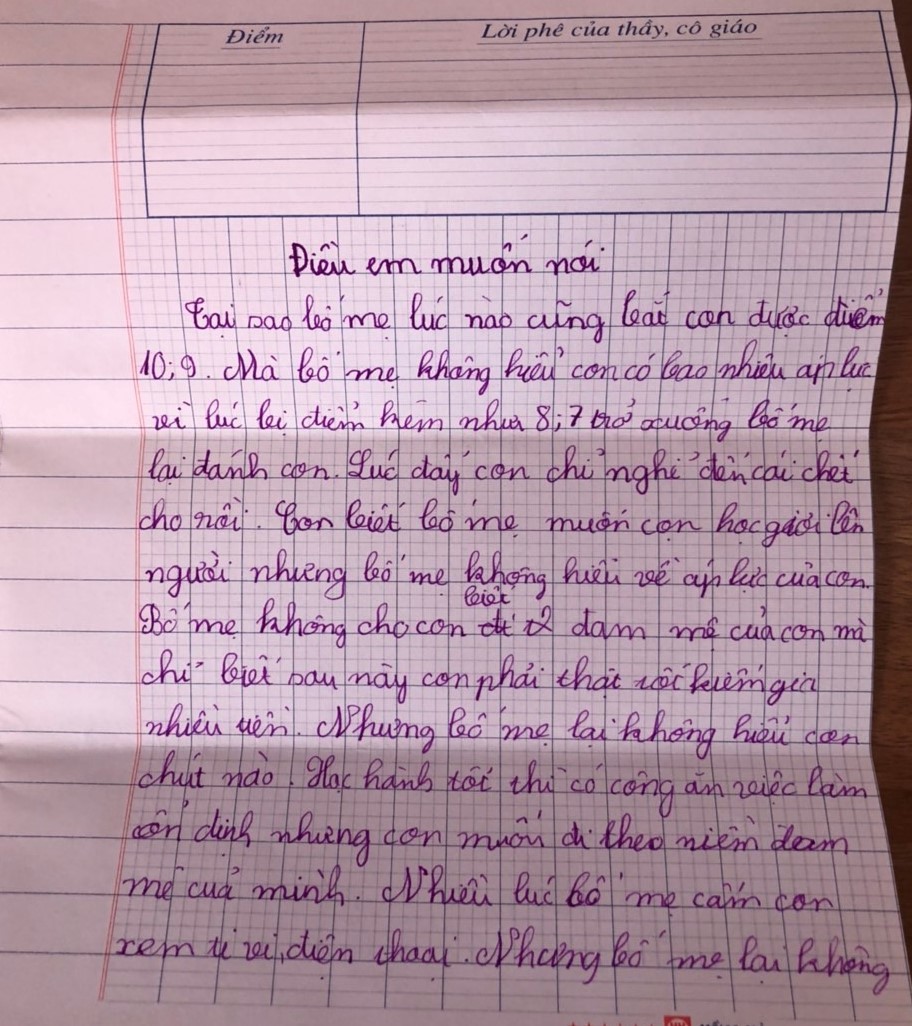 Điểm
Lời phê của thầy, cô giáo
Điều em muốn nói
Tại sao bố mẹ lúc nào cũng bắt con được điểm
10; 9. Mà bố mẹ không hiểu con có bao nhiêu áp lực
vì lúc bị điểm kém như 8; 7 trở xuống bố mẹ
lại đánh con. Lúc đấy con chỉ nghĩ đến cái chết
cho rồi. Con biết bố mẹ muốn con học giỏi lên
người nhưng bố mẹ không hiểu về áp lực của con.
Bố mẹ không cho con đam mê của con mà
chỉ biết sau này con phải thật tốt kiếm
nhiều tiền. Nhưng bố mẹ lại không hiểu con
chút nào. Học hành tốt thì có công ăn việc làm
ổn định nhưng con muốn đi theo niềm đam
mê của mình. Nhiều lúc bố mẹ cấm con
xem ti vi, điện thoại. Nhưng bố mẹ lại không